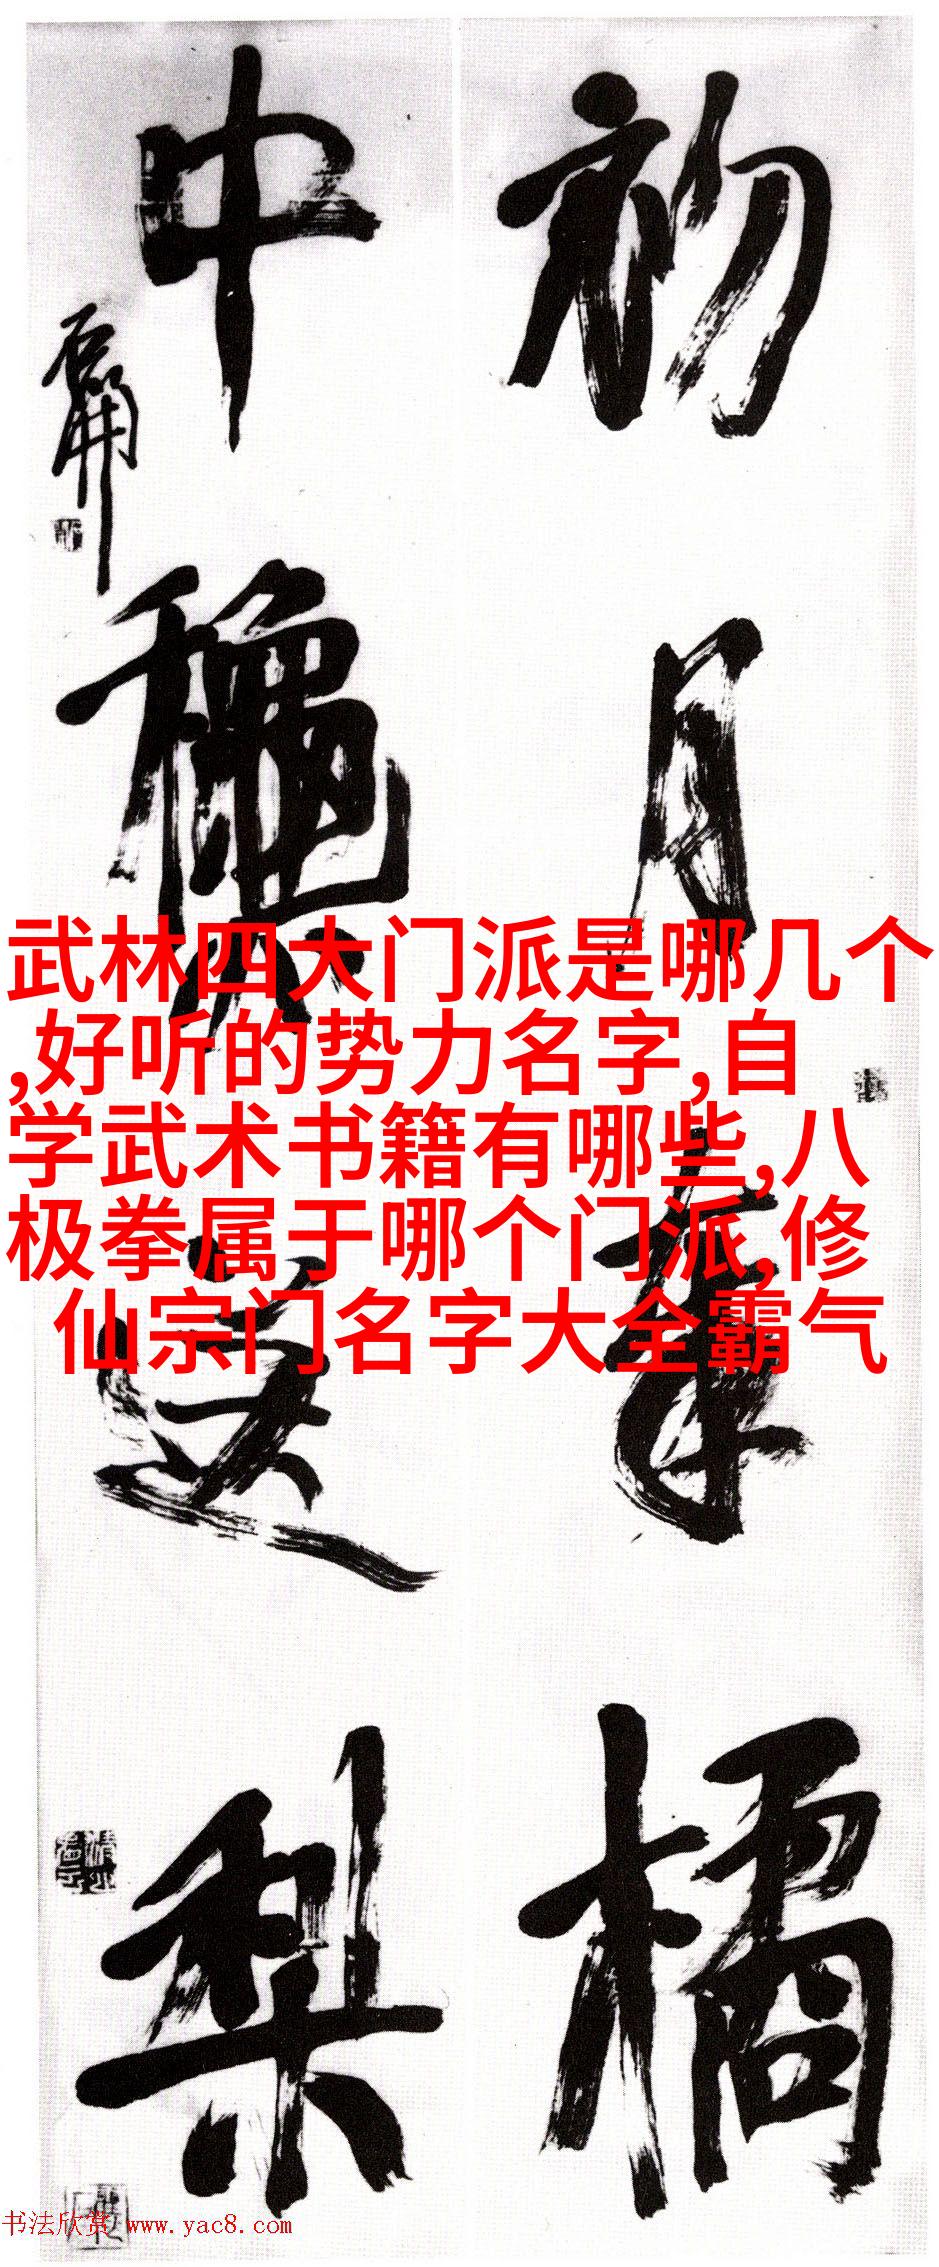 初
月
橘
中
梨
石開
武林四大门派是哪几个
,好听的势力名字,自
学武术书籍有哪些,八
极拳属于哪个门派,修
仙宗门名字大全霸气
书法欣赏 www.yac8.com